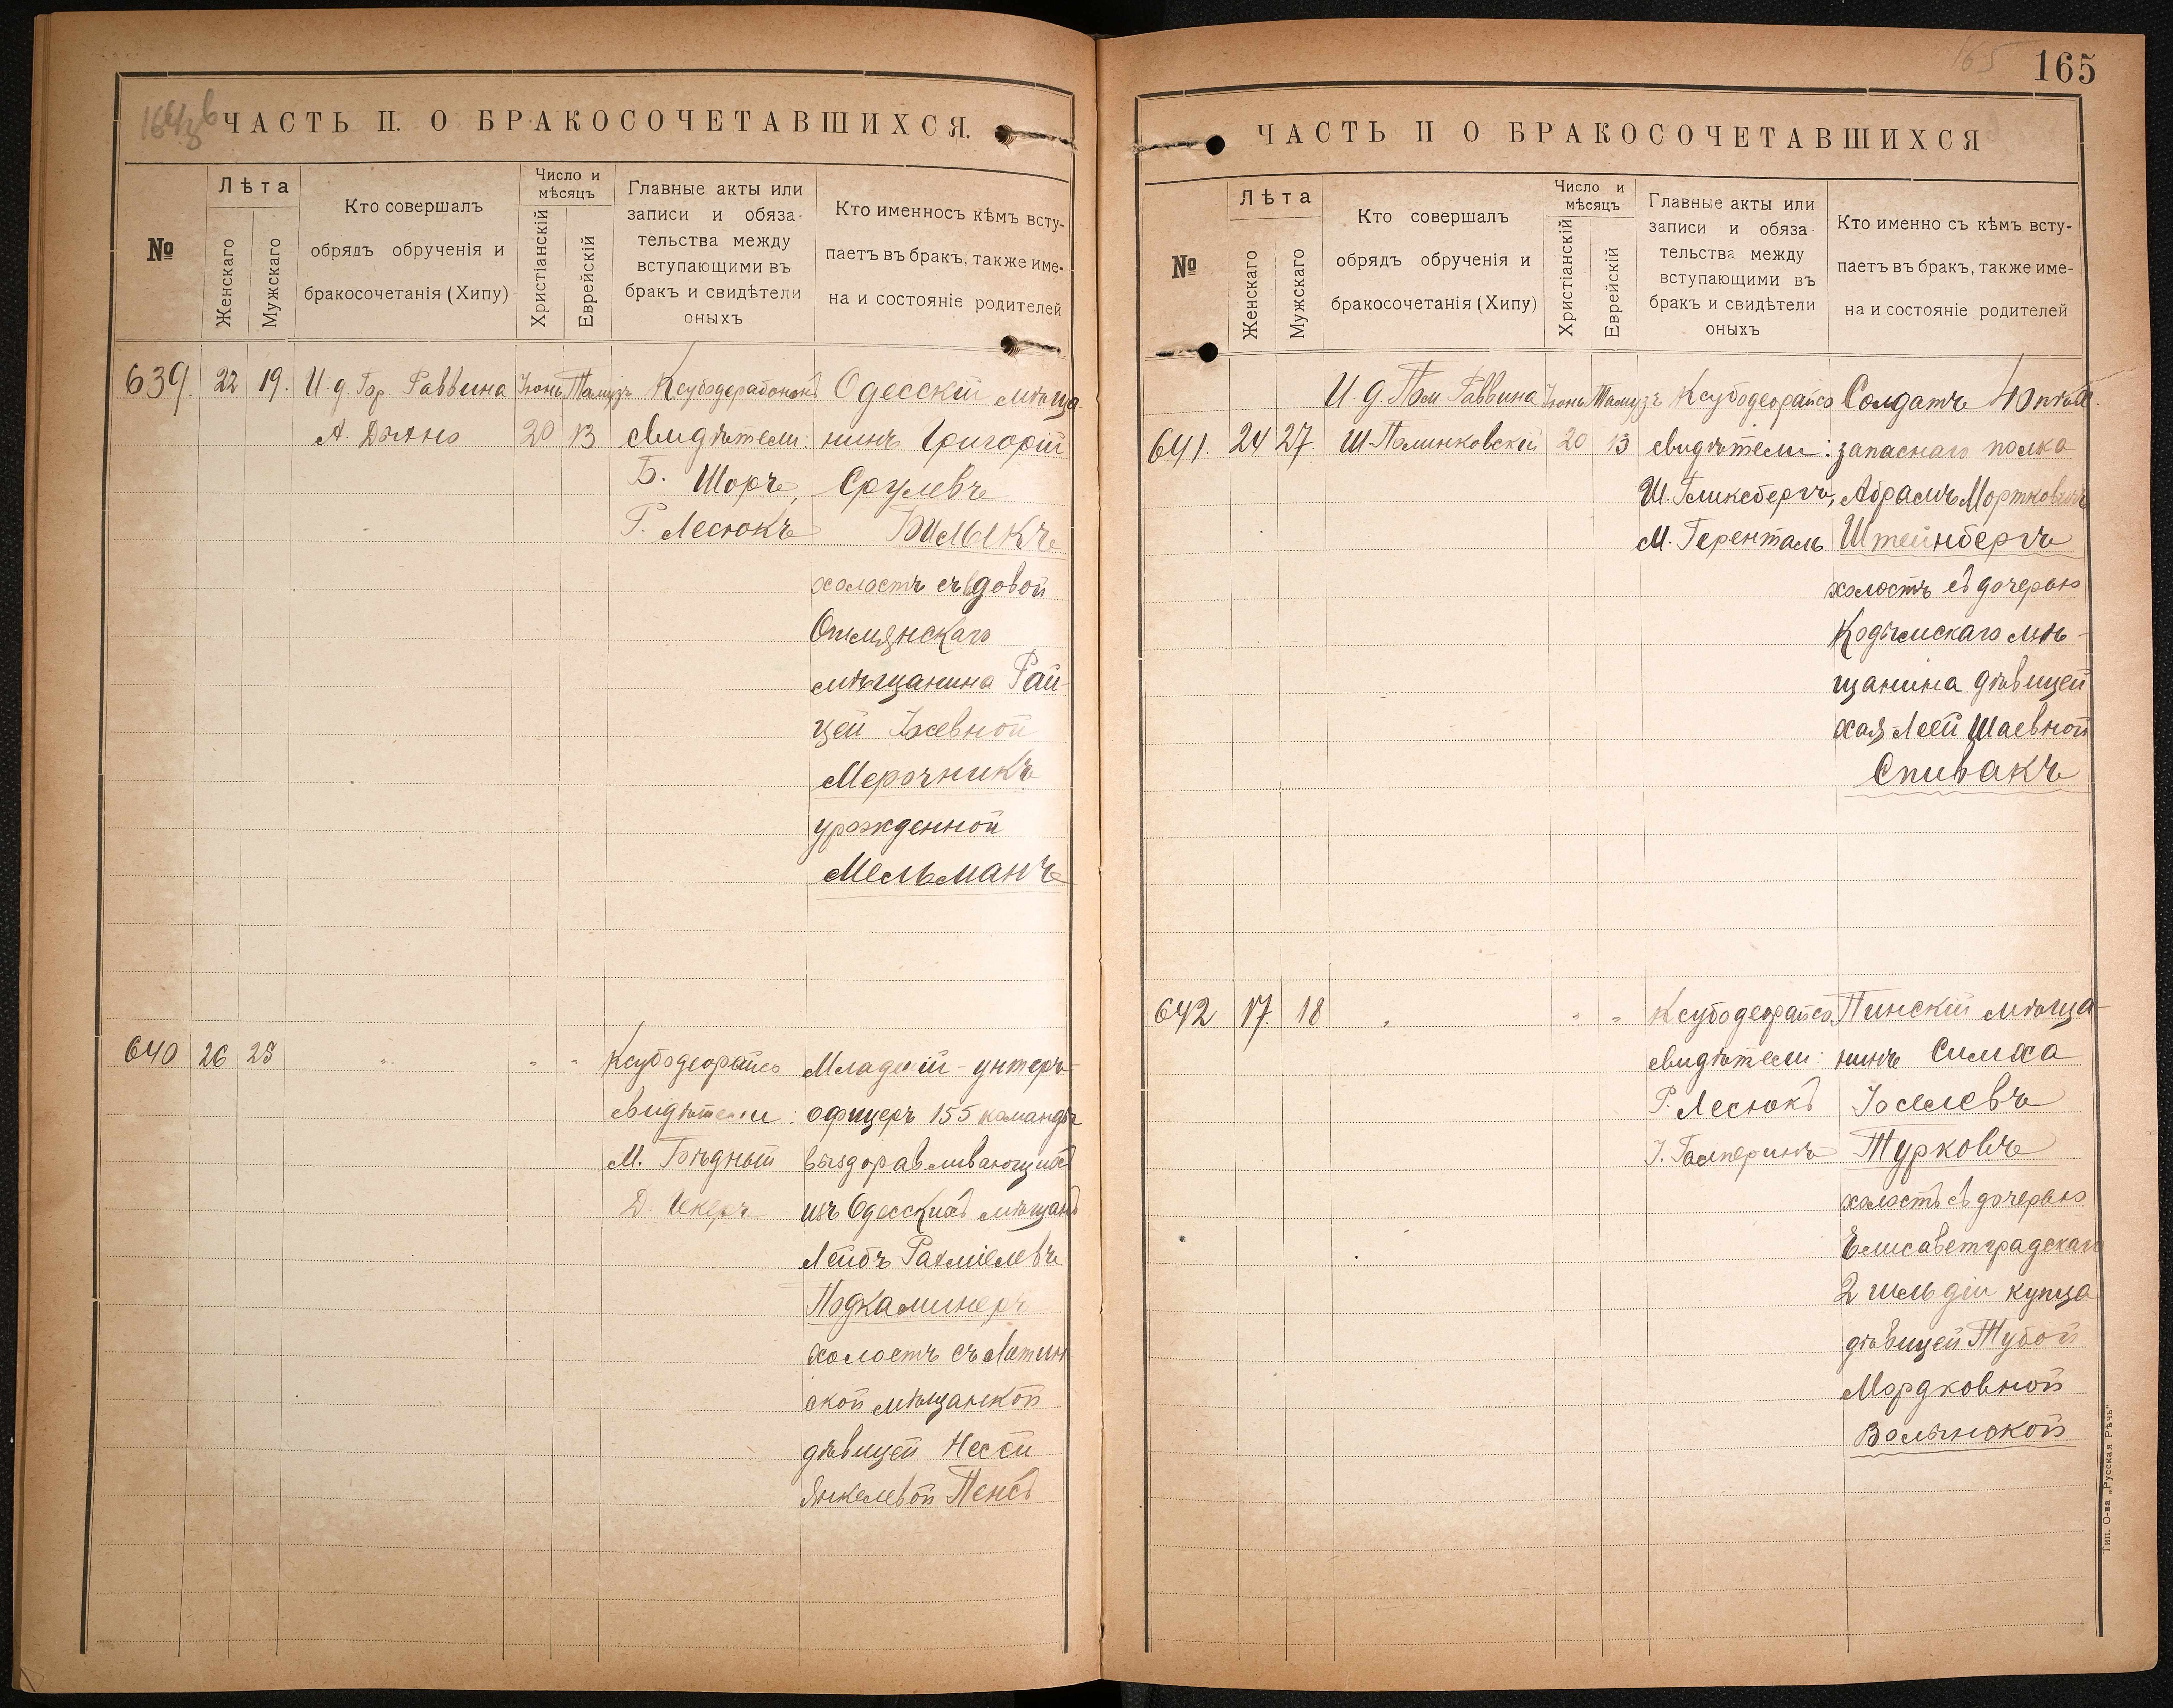 ЧАСТЬ II. О БРАКОСОЧЕТАВШИХСЯ.
№
Лѣта
Женскаго
Мужскаго
Кто совершалъ
обрядъ обрученія и
бракосочетанія (Хипу)
Число и
мѣсяцъ
Христіанскій
Еврейскій
Главные акты или
записи и обяза-
тельства между
вступающими въ
бракъ и свидѣтели
оныхъ
Кто именносъ кѣмъ всту-
паетъ въ бракъ, также име-
на и состояніе родителей
639. 22 19. И. д. Гор. Раввина Іюнь Тамузъ
А. Дыхно 20 13
свидѣтели:
Б. Шоръ,
Г. Лесюкъ
Одесскій мѣща-
нинъ Григорій
Срулевъ
Билыкъ
холостъ съ вдовой
Ошмянскаго
мѣщанина Рай-
цей
Мерочникъ
урожденной
Мельманъ
640 26 25 " " "
Ксубодеорайсо
свидѣтели:
М. Бѣдный
Д.
Младшій унтеръ-
офицеръ 155 команды
выздоравливающихъ
изъ Одесскихъ мѣщанъ
Лейбъ Рахміелевъ
Подкаминеръ
холостъ съ
ской мѣщанкой
дѣвицей Несси
Янкелевой Пенсъ
165
165
ЧАСТЬ II О БРАКОСОЧЕТАВШИХСЯ
№
Лѣта
Женскаго
Мужскаго
Кто совершалъ
обрядъ обрученія и
бракосочетанія (Хипу)
Число и
мѣсяцъ
Христіанскій
Еврейскій
Главные акты или
записи и обяза
тельства между
вступающими въ
бракъ и свидѣтели
оныхъ
Кто именно съ кѣмъ всту-
паетъ въ бракъ, также име-
на и состояніе родителей
И. д. Пом Раввина Іюнь Тамузъ
641. 24 27. Ш. Полинковскій 20 13
Ксубодеорайсо
свидѣтели:
Ш. Гликсбергъ,
М. Геренталь
Солдатъ 40 пѣхот.
запаснаго полка
Абрамъ Мортковичъ
Штейнбергъ
холостъ съ дочерью
Кодымскаго мѣ-
щанина дѣвицей
Хая Леей Шаевной
Спивакъ
642 17. 18 " " "
Ксубодеорайсо
свидѣтели:
Г. Лесюкъ
І. Гальперинъ
Пинскій мѣща-
нинъ Симха
Іоселевъ
Турковъ
холостъ съ дочерью
Елисаветградскаго
2 гильдіи купца
дѣвицей Тубой
Мордковной
Волынской
Тип. О-ва „Русская Рѣчь"